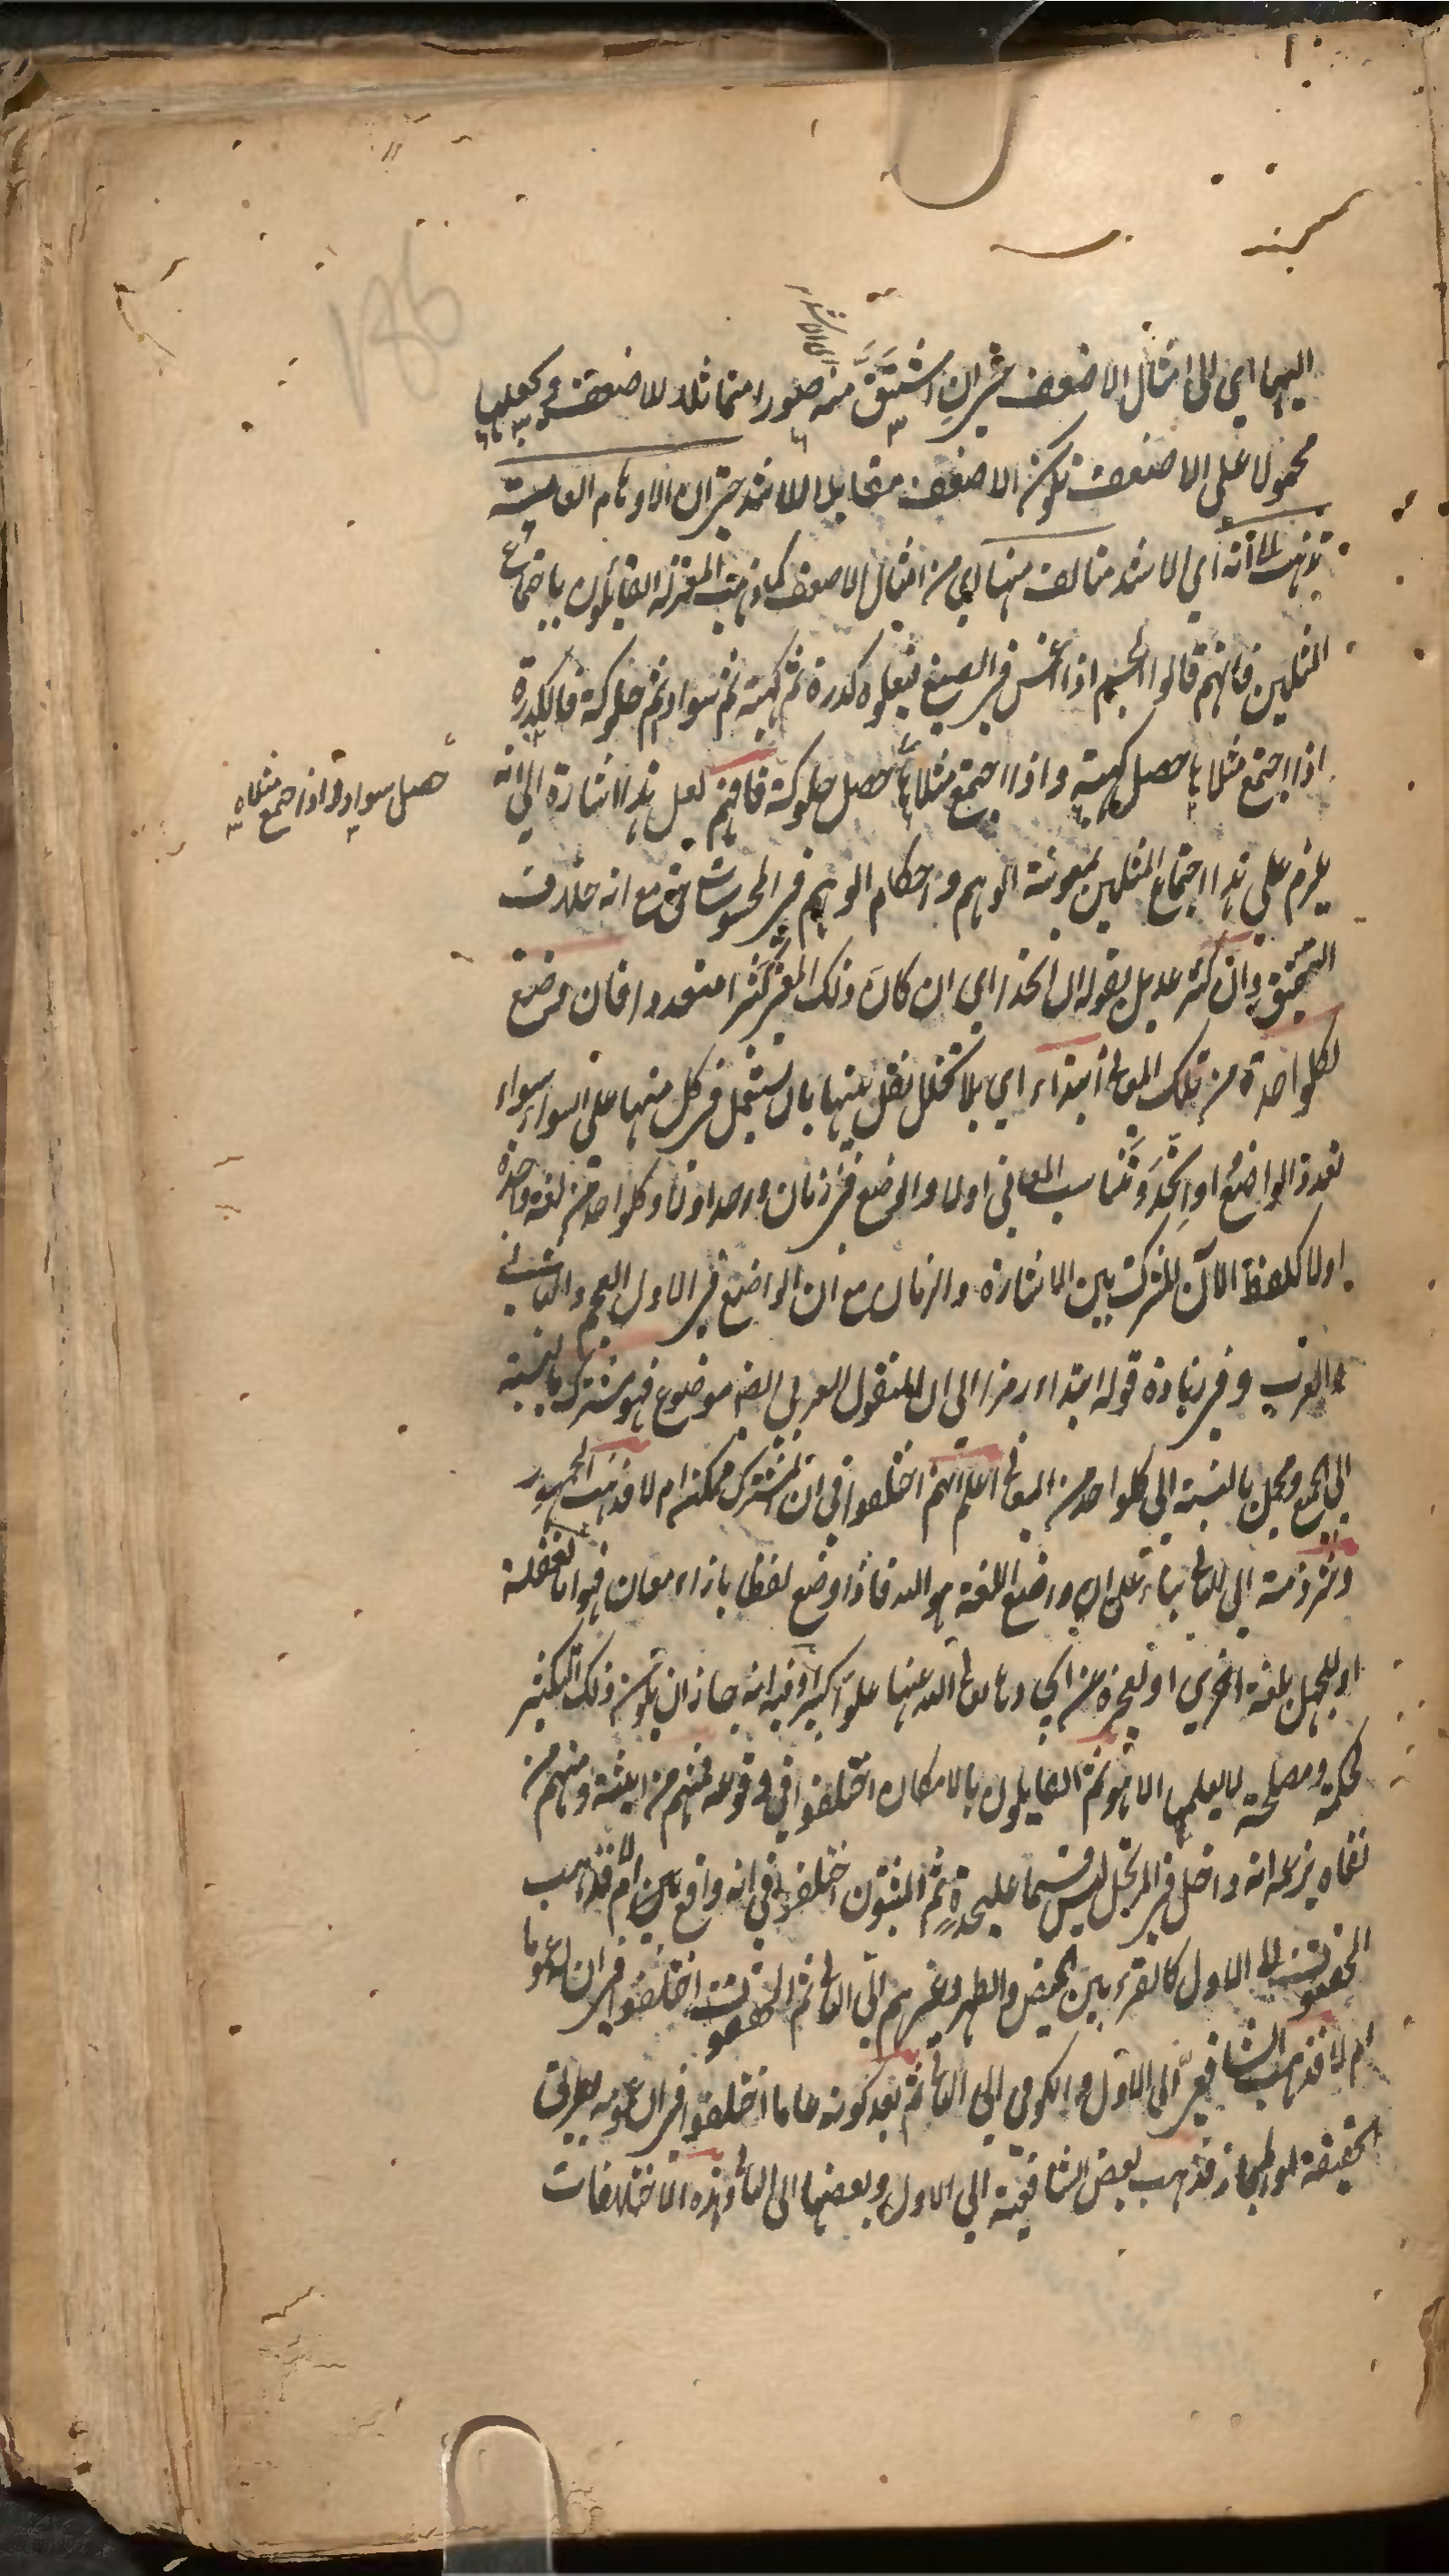 اليها اي الى امثال الاضعف حتى ان اشتق منه صورا متماثلا للاضعف ويجعلها
اي الاشد
محمولا على الاضعف يكون الاضعف مقابل الاشد حتى ان الاوهام العامية
تذهب الى انه اي الاشد متالف منها اي من امثال الاضعف كما ذهبت المعتزلة القايلون باجتماع
المثلين فانهم قالوا الجسم اذا غمس في الصبغ فيعلوه كدرة ثم كهبة ثم سواد ثم حلوكة فالكدرة
اذا اجتمع مثلاها حصل كهبة واذا اجتمع مثلاها حصل حلوكة فافهم لعل هذا اشارة الى انه
حصل سواد واذا اجتمع مثلاه
يلزم على هذا اجتماع المثلين بمعونة الوهم واحكام الوهم في المحسوسات حق مع انه خلاف
التحقيق وان كثر عديل بقوله ان اتحد اي ان كان ذلك المفرد كثر متعددا فان وضع
لكلواحدة من تلك المعاني ابتداء اي بلا تخلل نقل بينها بان يستعمل في كل منها على السواء سواء
تعدد الواضع او اتحد وتناسب المعاني اولا والوضع في زمان واحد اولا وكلواحد من لغة واحدة
اولا كلفظ الآن المشترك بين الاشارة والزمان مع ان الواضع في الاول العجم والثاني
العرب وفي زيادة قوله ابتداء رمز الى ان المنقول العرفي ايضا موضوع فهو مشترك بالنسبة
الى الجميع ومجمل بالنسبة الى كلواحد من المعاني اعلم انهم اختلفوا في ان المشترك ممكن ام لا فذهب الجمهور
وشرذمة الى الثاني بناء على ان واضع اللغة هو الله فاذا وضع لفظا بازاء معان فهو اما لغفلة
او للجهل بلغة اخرى او لعجزه عن ايجادها تعالى الله عنها علوا كبيرا وفيه انه جاز ان يكون ذلك التكثير
لحكمة ومصلحة لا يعلمها الا هو ثم القايلون بالامكان اختلفوا في وقوعه فمنهم من اثبته ومنهم من
نفاه بزعمه انه داخل في المرتجل ليس قسما عليحدة ثم المثبتون اختلفوا في انه واقع بين ام لا فذهب
الى الاول كالقرء بين الحيض والطهر وغيرهم الى الثاني ثم اختلفوا في ان له عموما
ام لا فذهب الشافعي الى الاول والكوفي الى الثاني ثم بعد كونه عاما اختلفوا في ان عمومه بطريق
الحقيقة او المجاز فذهب بعض الشافعية الى الاول وبعضها الى الثاني وهذه الاختلافات
186